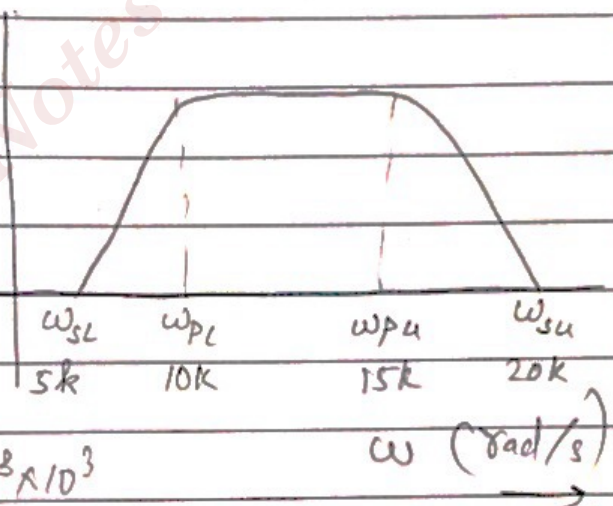 Notes
ω_SL ω_PL ω_PU ω_SU
5k 10k 15k 20k
ω (rad/s)
×10³